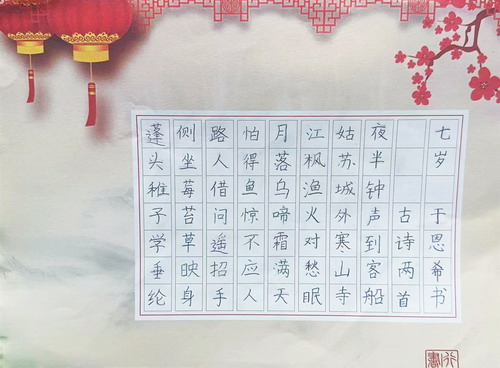 蓬头稚子学垂纶
侧坐莓苔草映身
路人借问遥招手
怕得鱼惊不应人
月落乌啼霜满天
江枫渔火对愁眠
姑苏城外寒山寺
夜半钟声到客船
古诗两首
七岁 于恩希书